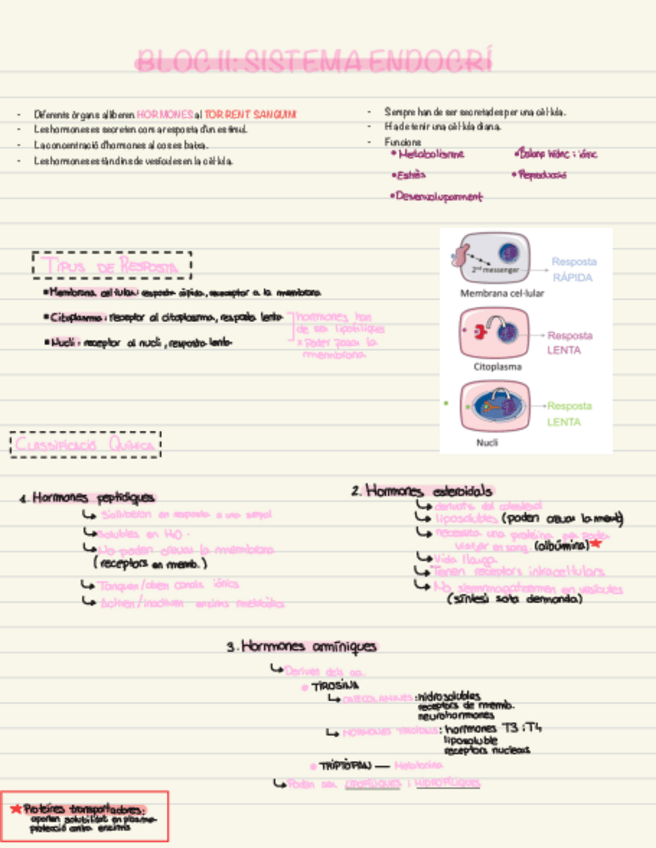 BLOC II: SISTEMA ENDOCRÍ
- Diferents òrgans alliberen HORMONES al TORRENT SANGUINI
- Les hormones es secreten com a resposta d'un estímul.
- La concentració d'hormones al cos es baixa.
- Les hormones estàn dins de vesícules en la cèl·lula.
- Sempre han de ser secretades per una cèl·lula.
- Ha de tenir una cèl·lula diana.
- Funcions
• Metabolisme
• Balanç hídric i iònic
• Estrès
• Reproducció
• Desenvolupament
TIPUS DE RESPOSTA
• Membrana cel·lular: resposta ràpida, receptor a la membrana
• Citoplasma: receptor al citoplasma, resposta lenta
• Nucli: receptor al nucli, resposta lenta
hormones han
de ser lipofíliques
• Poder passar la
membrana
2nd messenger
Resposta
RÀPIDA
Membrana cel·lular
Resposta
LENTA
Citoplasma
Resposta
LENTA
Nucli
CLASSIFICACIÓ QUÍMICA
1. Hormones peptídiques
S'alliberen en resposta a una senyal
Solubles en H2O.
No poden creuar la membrana
(receptors en memb.)
Tanquen/obren canals iònics
Activen/inactiven enzims metabòlics
2. Hormones esteroidals
derivats del colesterol
liposolubles (poden creuar la memb)
necessita una proteïna per poder
viatjar en sang. (albúmina)★
Vida llarga
Tenen receptors intracel·lulars
No s'emmagatzemen en vesícules
(síntesi sota demanda)
3. Hormones amíniques
Deriven dels aa.
• TIROSINA
CATECOLAMINES: hidrosolubles
receptors de memb.
neurohormones
HORMONES TIROIDALS: hormones T3 i T4
liposoluble
receptors nuclears
• TRIPTÒFAN — Melatonina
Poden ser LIPOFÍLIQUES i HIDROFÍLIQUES
★ Proteïnes transportadores:
aporten solubilitat en plasma
protecció contra enzims